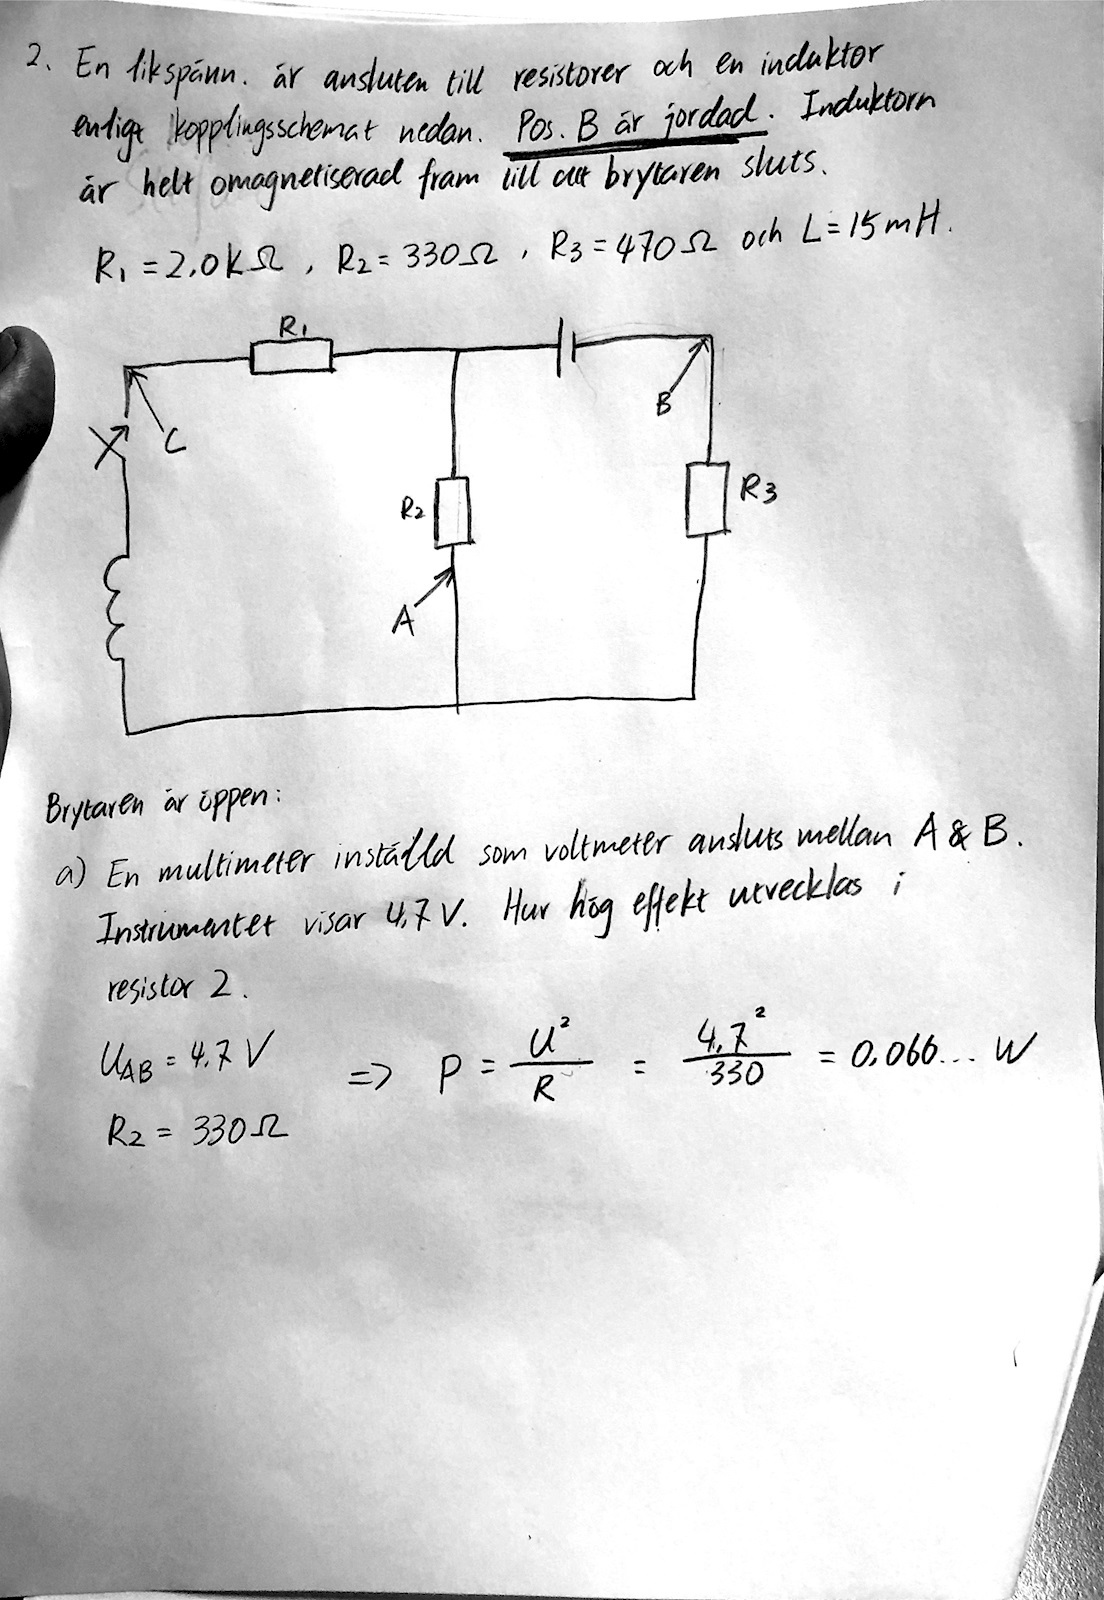 2. En likspänn. är ansluten till resistorer och en induktor
enligt kopplingsschemat nedan. Pos. B är jordad. Induktorn
är helt omagnetiserad fram till att brytaren sluts.
R₁ = 2,0kΩ , R₂ = 330Ω , R₃ = 470Ω och L = 15mH.
R₁
B
C
R₂
R₃
A
Brytaren är öppen:
a) En multimeter inställd som voltmeter ansluts mellan A & B.
Instrumentet visar 4,7 V. Hur hög effekt utvecklas i
resistor 2.
U_AB = 4.7 V => P = U²/R = 4,7²/330 = 0,066... W
R₂ = 330Ω